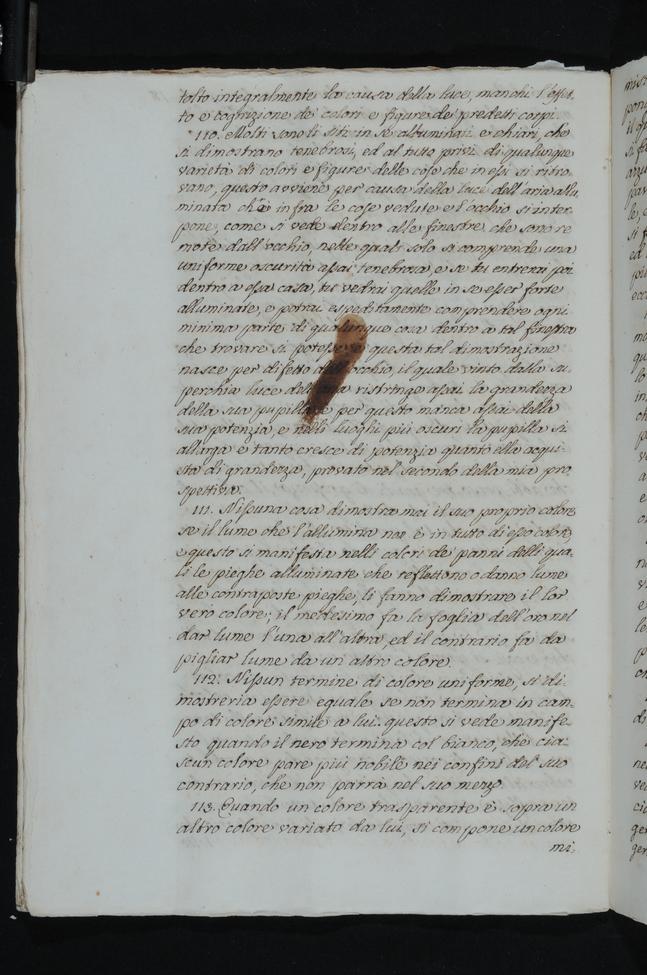 tolto integralmente la causa della luce, manchi l'effet-
to e cognizione dei colori e figure dei predetti corpi.
110. Molti sono li siti in se alluminati e chiari, che
si dimostrano tenebrosi, ed al tutto privi di qualunque
varietà di colori e figure delle cose che in essi si ritro
vano, questo avviene per causa della luce dell'aria allu-
minata che infra le cose vedute e l'occhio si inter-
pone, come si vede dentro alle finestre che sono re
mote dall'occhio, nelle quali solo si comprende una
uniforme oscurità assai tenebrosa, e se tu entrerai poi
dentro a essa casa, tu vedrai quelle in se esser forte
alluminate, e potrai espeditamente comprendere ogni
minima parte di qualunque cosa dentro a tal finestra
che trovare si potesse e questa tal dimostrazione
nasce per difetto dell'occhio, il quale vinto dalla su
perchia luce dell'aria ristringe assai la grandezza
della sua pupilla e per questo manca assai della
sua potenzia, e nelli luoghi più oscuri la pupilla si
allarga e tanto cresce di potenzia quanto ella acqui-
sta di grandezza, provato nel secondo della mia pro
spettiva.
111. Nissuna cosa dimostra mai il suo proprio colore
se il lume che l'allumina non è in tutto di esso colore,
e questo si manifesta nelli colori dei panni delli qua-
li le pieghe alluminate che reflettono o danno lume
alle contraposte pieghe, li fanno dimostrare il lor
vero colore; il medesimo fa la foglia dell'oro nel
dar lume l'una all'altra, ed il contrario fa da
pigliar lume da un altro colore.
112. Nissun termine di colore uniforme, si di-
mostreria essere equale se non termina in cam-
po di colore simile a lui. questo si vede manife-
sto quando il nero termina col bianco, che cia-
scun colore pare più nobile nei confini del suo
contrario, che non parrà nel suo mezzo
113. Quando un colore trasparente è sopra un
altro colore variato da lui, si compone un colore
mi-